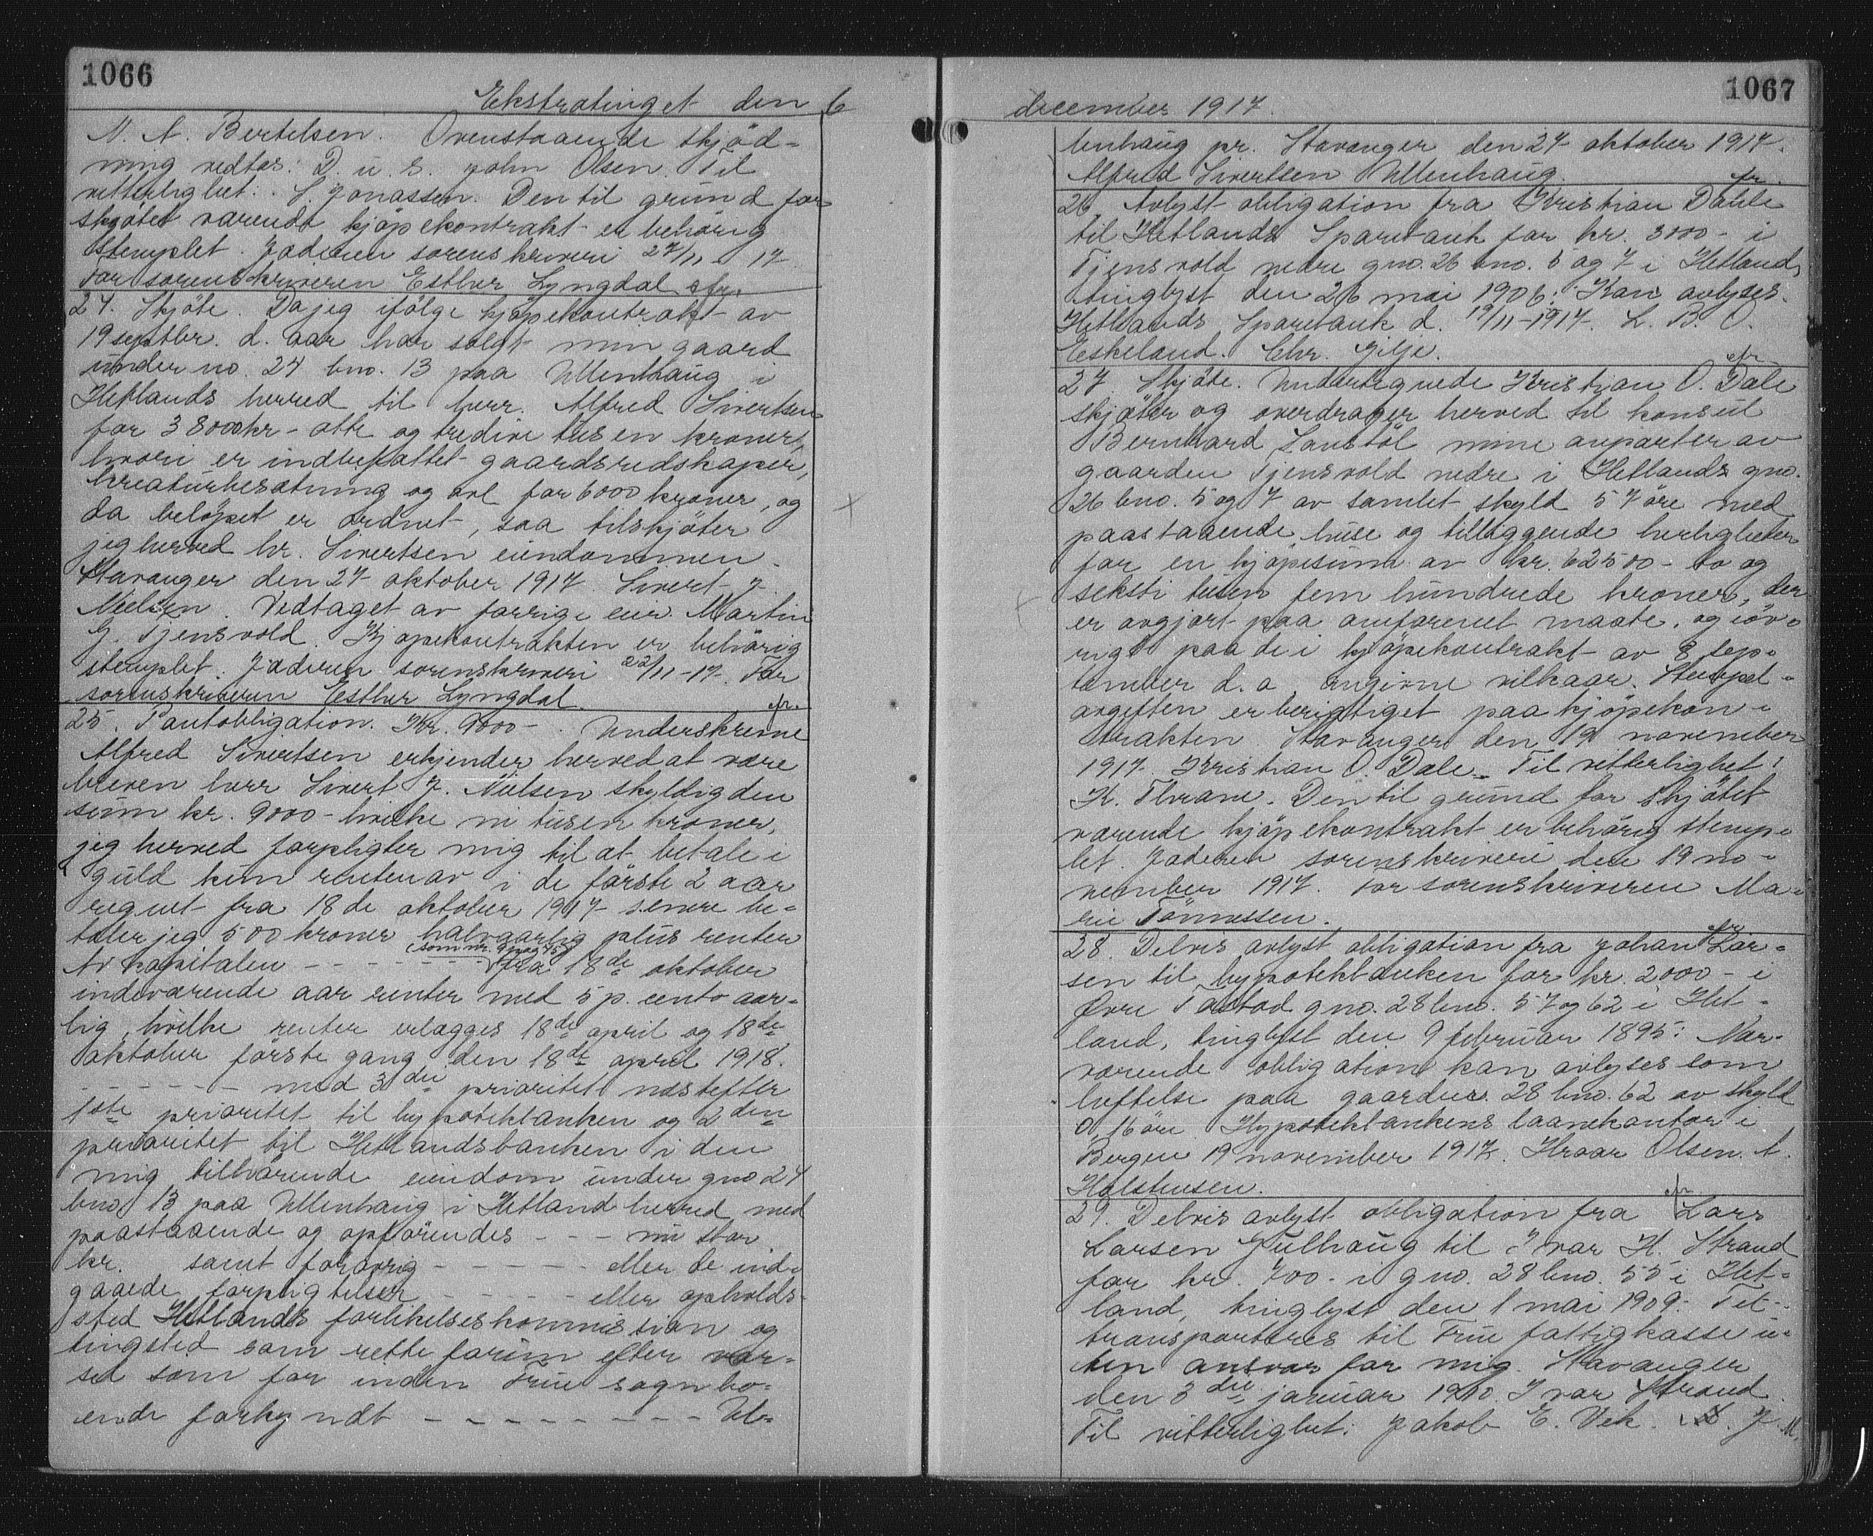 1066
Ekstratinget den 6
N. A. Bertelsen. Ovenstaaende skjöd-
ning vedtas: D. u. s. John Olsen. Til
vitterlighet: S. Jonassen. Den til grund for
skjötet værende kjöpekontrakt er behörig
stemplet. Jæderen sorenskriveri 27/11 - 17
For sorenskriveren Esther Lyngdal cfr.
24. Skjöte. Da jeg ifölge kjöpekontrakt av
19 septbr. d. aar har solgt min gaard
under no. 24 bno. 13 paa Ullenhaug i
Hetlands herred til herr. Alfred Sivertsen
for 38000 kr - otte og tredive tusen kroner,
hvori er indbefattet gaardsredskaper,
kreaturbesætning og avl for 6000 kroner, og
da belöpet er ordnet, saa tilskjöter
jeg herved hr. Sivertsen eiendommen.
Stavanger den 27 oktober 1917. Sivert J.
Nielsen. Vedtaget av forrige eier Martin
G. Tjensvold. Kjöpekontrakten er behörig
stemplet. Jæderen sorenskriveri 22/11 - 17. For
sorenskriveren Esther Lyngdal.
cfr.
25. Pantobligation. Kr. 9000 - . Underskrevne
Alfred Sivertsen erkjender herved at være
bleven herr Sivert J. Nielsen skyldig den
sum kr. 9000 - hvilke ni tusen kroner,
jeg herved forpligter mig til at betale i
guld kun renten av i de förste 2 aar
regnet fra 18de oktober 1917 senere be-
taler jeg 500 kroner halvaarlig plus renter
(som nr. 9 pag 45)
Av kapitalen - - - - - - - fra 18de oktober
indeværende aar renter med 5 p. cento aar-
lig, hvilke renter erlægges 18de april og 18de
oktober förste gang den 18de april 1918.
- - - - - - med 3die prioritet næstefter
1ste prioritet til hypotekbanken og 2den
prioritet til Hetlandsbanken i den
mig tilhörende eiendom under gno 24
bno. 13 paa Ullenhaug i Hetland herred med
paastaaende og opförendes - - - nu stor
kr. samt forövrig - - - - - eller de ind-
gaaede forpligtelser - - - - - eller opholds-
sted Hetlands forlikelseskommission og
tingsted som rette forum efter var-
sel som for inden Frue sogn bo-
ende forkyndt - - - - - - - - - Ul-
1067
december 1917.
lenhaug pr. Stavanger den 27 oktober 1917.
Alfred Sivertsen Ullenhaug.
cfr.
26. Avlyst obligation fra Kristian Dahle
til Hetlands Sparebank for kr. 3000 - i
Tjensvold nedre gno. 26 bno. 5 og 7 i Hetland,
tinglyst den 26 mai 1906: Kan avlyses.
Hetlands Sparebank d. 19/11 - 1917. L. B. O.
Eskeland. Chr. Gilje.
cfr
27. Skjöte. Undertegnede Kristian O. Dale
skjöter og overdrager herved til konsul
Bernhard Sanstöl mine anparter av
gaarden Tjensvold nedre i Hetlands gno.
26 bno. 5 og 7 av samlet skyld 57 öre med
paastaaende huse og tilliggende herligheter
for en kjöpesum av kr. 62500 - to og
seksti tusen fem hundrede kroner, der
er avgjort paa omforenet maate, og iöv-
rigt paa de i kjöpekontrakt av 8 sep-
tember d. a. angivne vilkaar. Stempel-
avgiften er berigtiget paa kjöpekon-
trakten. Stavanger den 19 november
1917. Kristian O. Dale. Til vitterlighet:
K. Thrane. Den til grund for skjötet
værende kjöpekontrakt er behörig stemp-
let. Jæderen sorenskriveri den 19 no-
vember 1917. For sorenskriveren Ma-
rie Tönnessen.
cfr
28. Delvis avlyst obligation fra Johan Lar-
sen til hypotekbanken for kr. 2000 - i
Øvre Tastad gno. 28 bno. 57 og 62 i Het-
land, tinglyst den 9 februar 1895: Nær-
værende obligation kan avlyses som
heftelse paa gaardsnr. 28 bno. 62 av skyld
0,16 öre. Hypotekbankens laanekontor i
Bergen 19 november 1917. Hroar Olsen. A.
Halstensen.
cfr
29. Delvis avlyst obligation fra Lars
Larsen Gulhaug til Ivar H. Strand
for kr. 700 - i gno. 28 bno. 55 i Het-
land, tinglyst den 1 mai 1909: Til-
transporteres til Frue fattigkasse u-
ten ansvar for mig. Stavanger
den 3die januar 1910. Ivar Strand.
Til vitterlighet: Jakob E. Vik.